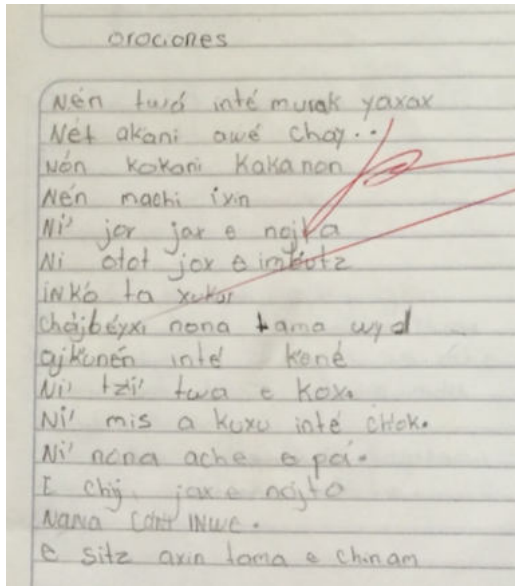 oraciones
Nén twá inté murak yaxax
Nét akani awé chay..
Nón kokani kakanon
Nén machi ixin
Ni' jor jax e nojta
Ni otot jox e imbutz
inkó ta xukur
chájbéyxi nona tama
ajkunén inté kené
Ni' tzi' twa e kox.
Ni' mis a kuxu inté chok.
Ni' nona ache e pa'.
I chij jax e nojta
Nana inwe.
e sitz axin tama e chinam